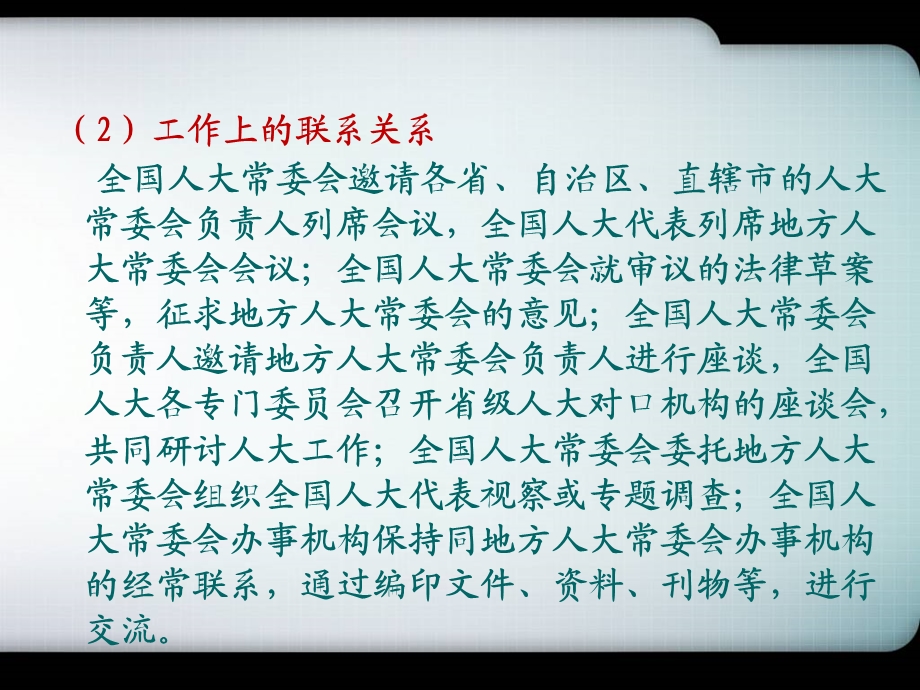 （2）工作上的联系关系
全国人大常委会邀请各省、自治区、直辖市的人大
常委会负责人列席会议，全国人大代表列席地方人
大常委会会议；全国人大常委会就审议的法律草案
等，征求地方人大常委会的意见；全国人大常委会
负责人邀请地方人大常委会负责人进行座谈，全国
人大各专门委员会召开省级人大对口机构的座谈会，
共同研讨人大工作；全国人大常委会委托地方人大
常委会组织全国人大代表视察或专题调查；全国人
大常委会办事机构保持同地方人大常委会办事机构
的经常联系，通过编印文件、资料、刊物等，进行
交流。